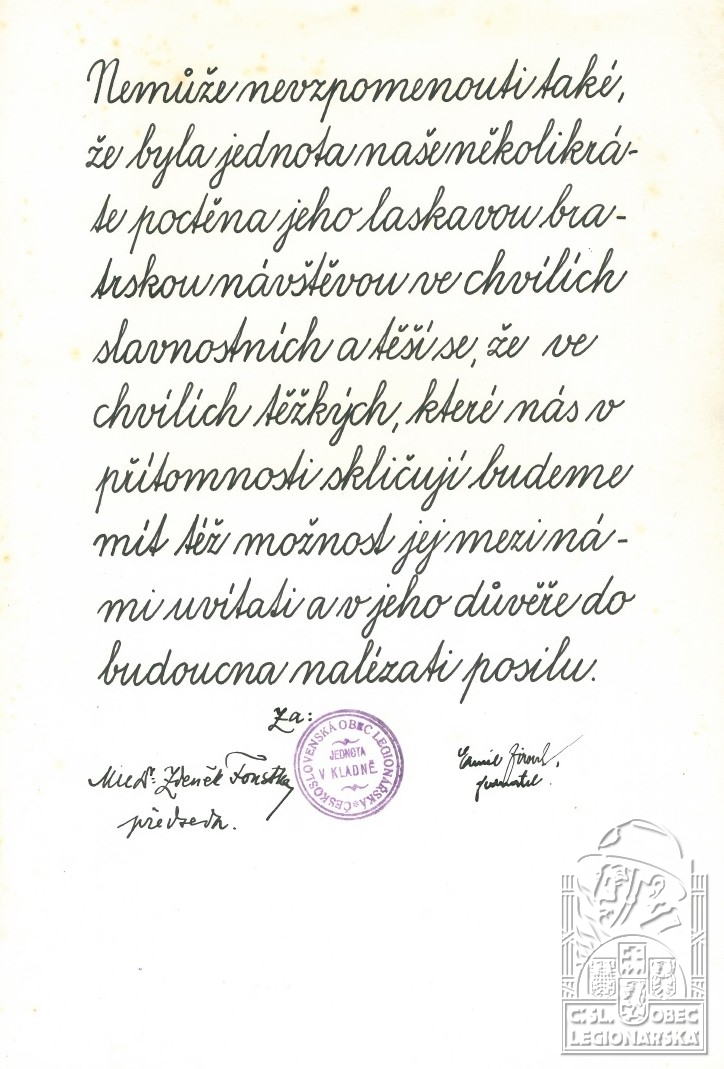 Nemůže nevzpomenouti také,
že byla jednota naše několikrá-
te poctěna jeho laskavou bra-
trskou návštěvou ve chvílích
slavnostních a těší se, že ve
chvílích těžkých, které nás v
přítomnosti skličují budeme
mít též možnost jej mezi ná-
mi uvítati a v jeho důvěře do
budoucna nalézati posilu.
Za:
ČESKOSLOVENSKÁ OBEC LEGIONÁŘSKÁ
JEDNOTA
V KLADNĚ
MUDr. Zdeněk
předseda.
Emil
jednatel.
Č.SL. OBEC
LEGIONÁŘSKÁ